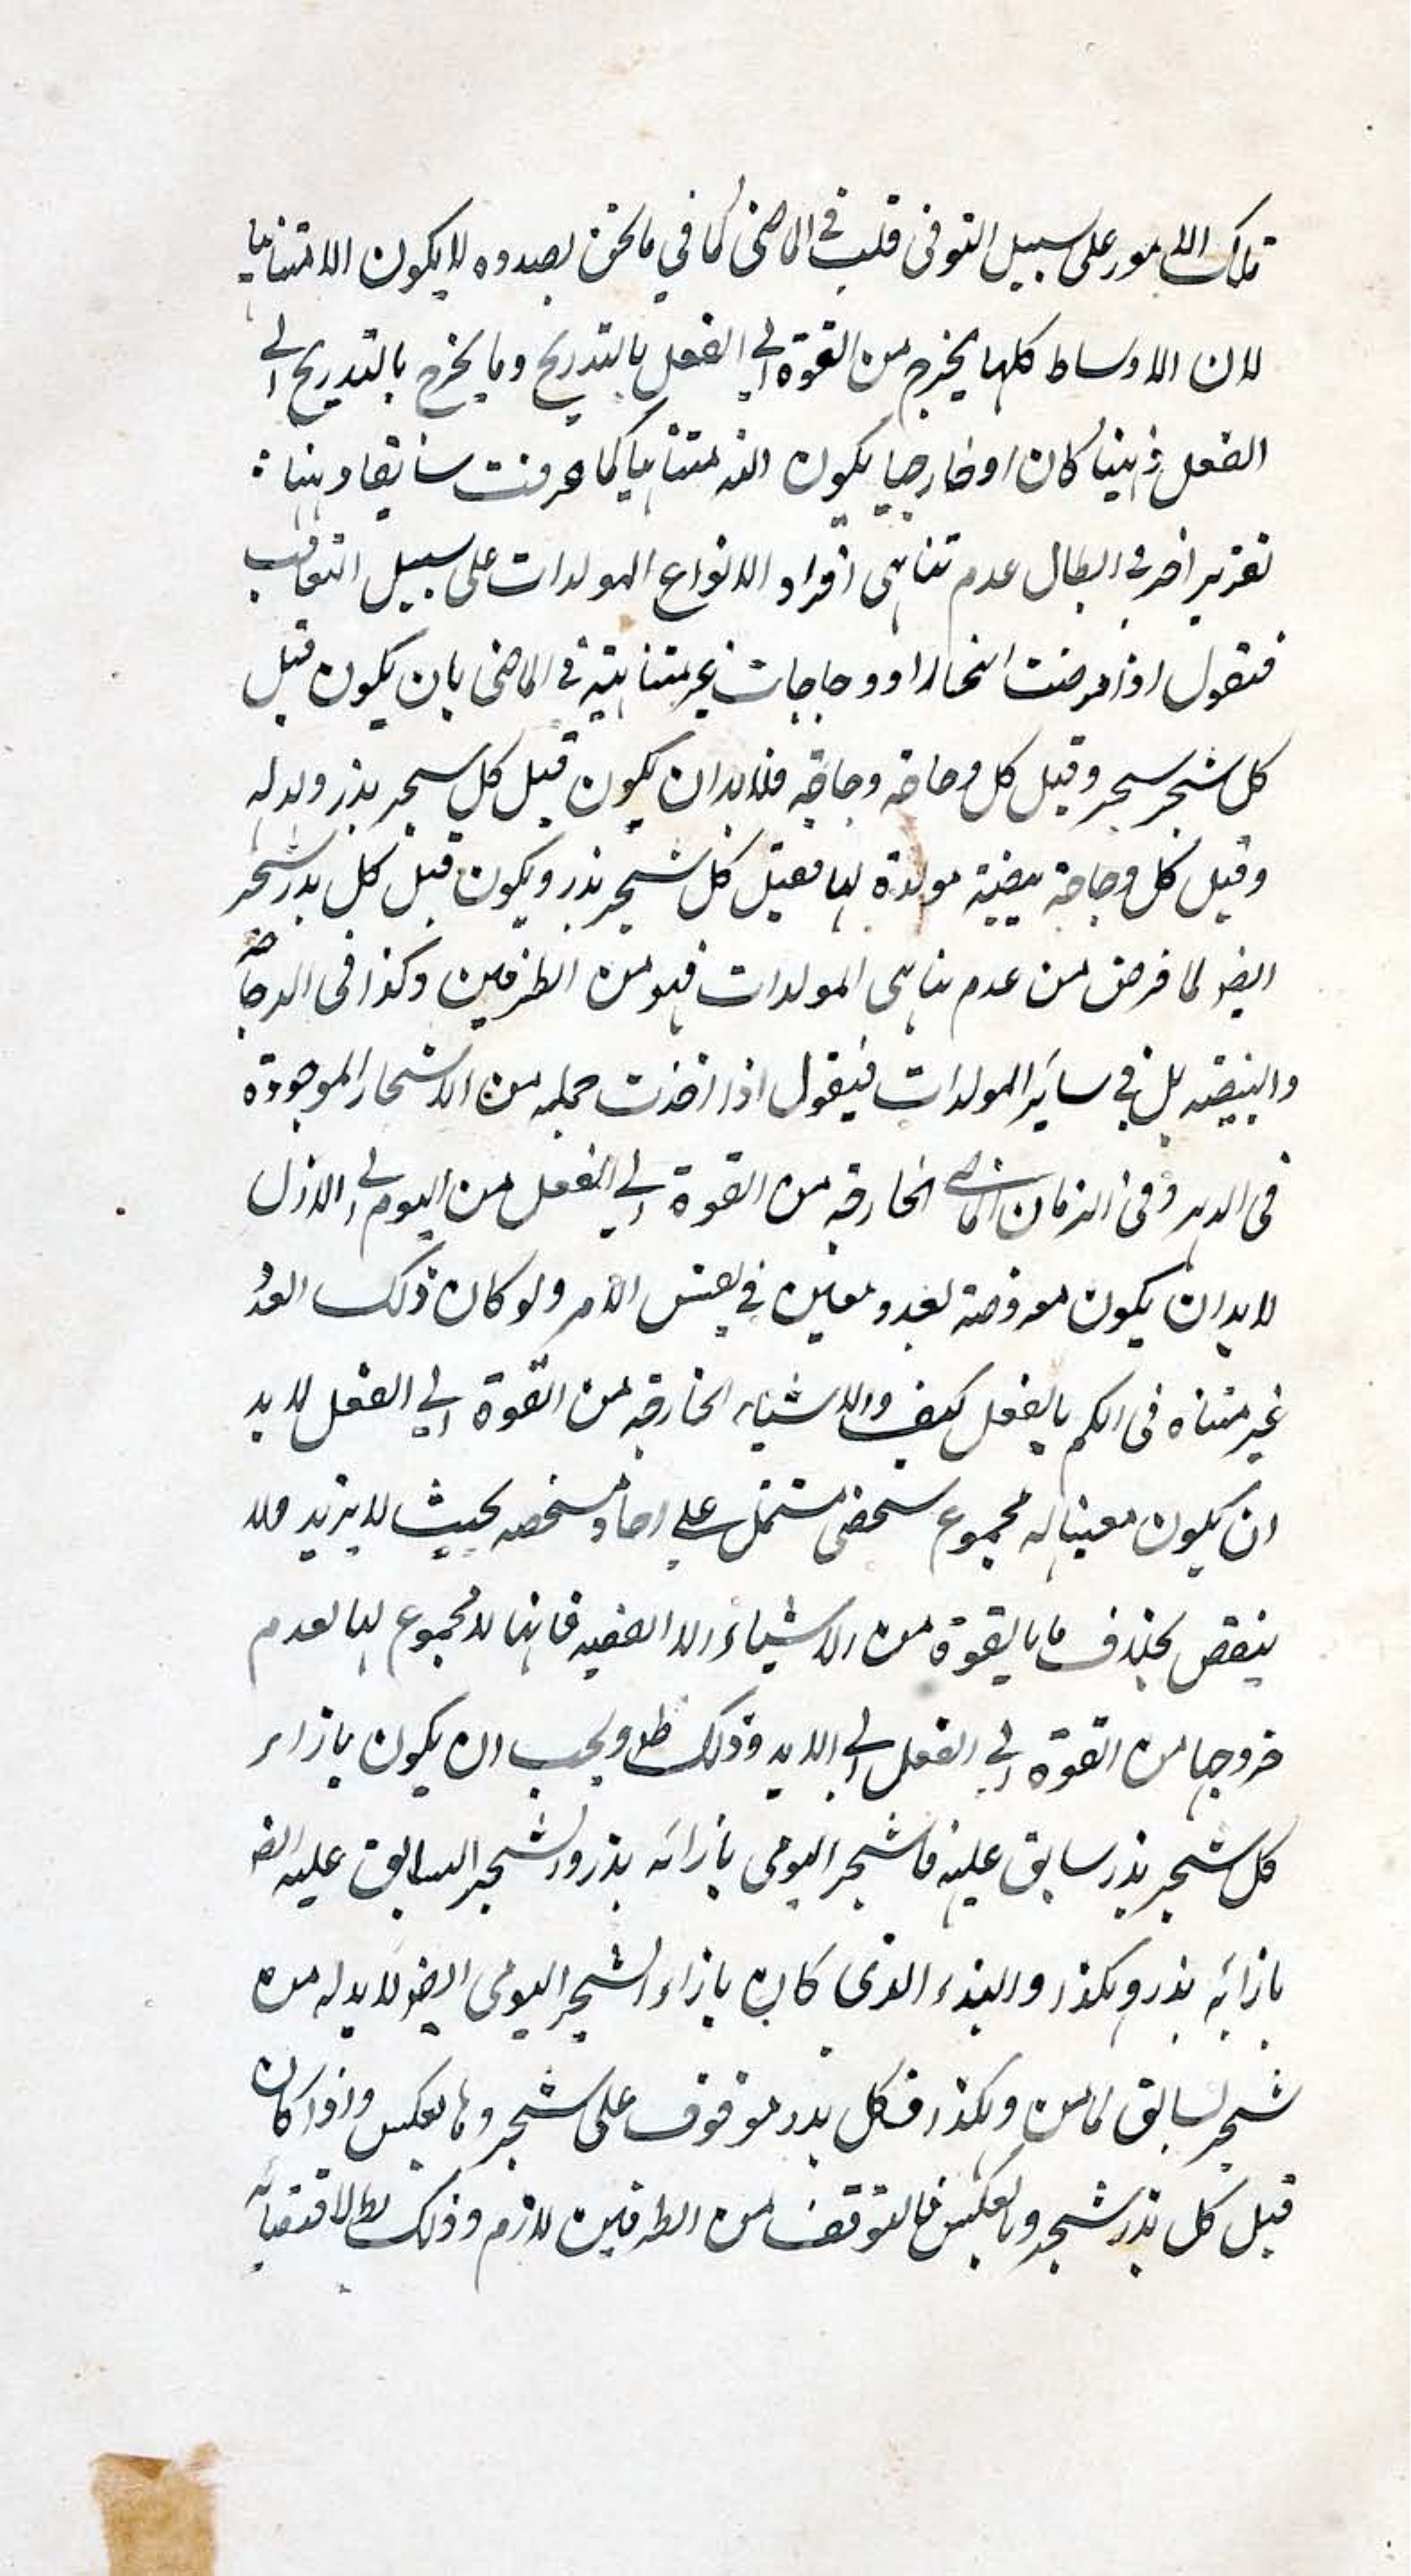 تلك الامور على سبيل التوفى قلت فى الماضى كما فى ما نحن بصدده لا يكون الا متناهيا
لان الاوساط كلها يخرج من القوة الى الفعل بالتدريج وما يخرج بالتدريج الى
الفعل ذهنيا كان او خارجيا يكون الفه متناهيا كما عرفت سابقا وهنا
تقرير اخر فى ابطال عدم تناهى افراد الانواع المولدات على سبيل التعاقب
فنقول اذا فرضت اشجارا ودجاجات غير متناهية فى الماضى بان يكون قبل
كل شجر شجر وقبل كل دجاجة دجاجة فلا بد ان يكون قبل كل شجر بذر ولد له
وقبل كل دجاجة بيضة مولدة لها فقبل كل شجر بذر ويكون قبل كل بذر شجر
ايضا لما فرض من عدم تناهى المولدات فهو من الطرفين وكذا فى الدجاجة
والبيضة بل فى سائر المولدات فنقول اذا اخذت جملة من الاشجار الموجودة
فى الدهر وفى الزمان الماضى الخارجة من القوة الى الفعل من اليوم الى الازل
لا بد ان يكون معروضة لعدد معين فى نفس الامر ولو كان ذلك العدد
غير متناه فى الكم بالفعل كيف والاشياء الخارجة من القوة الى الفعل لا بد
ان يكون معينا له مجموع شخصى مشتمل على احاد مشخصه بحيث لا يزيد ولا
ينقص بخلاف ما بالقوة من الاشياء الا الغفيه فانها لا مجموع لها لعدم
خروجها من القوة الى الفعل الى الابد وذلك ظ ويجب ان يكون بازاء
كل شجر بذر سابق عليه فاشجر اليومى بازائه بذر والشجر السابق عليه ايضا
بازائه بذر وهكذا والبذر الذى كان بازاء الشجر اليومى ايضا لا بد له من
شجر سابق كما من وهكذا فكل بذر موقوف على شجر وبالعكس واذا كان
قبل كل بذر شجر وبالعكس فالتوقف من الطرفين لازم وذلك بط لاقتضائه